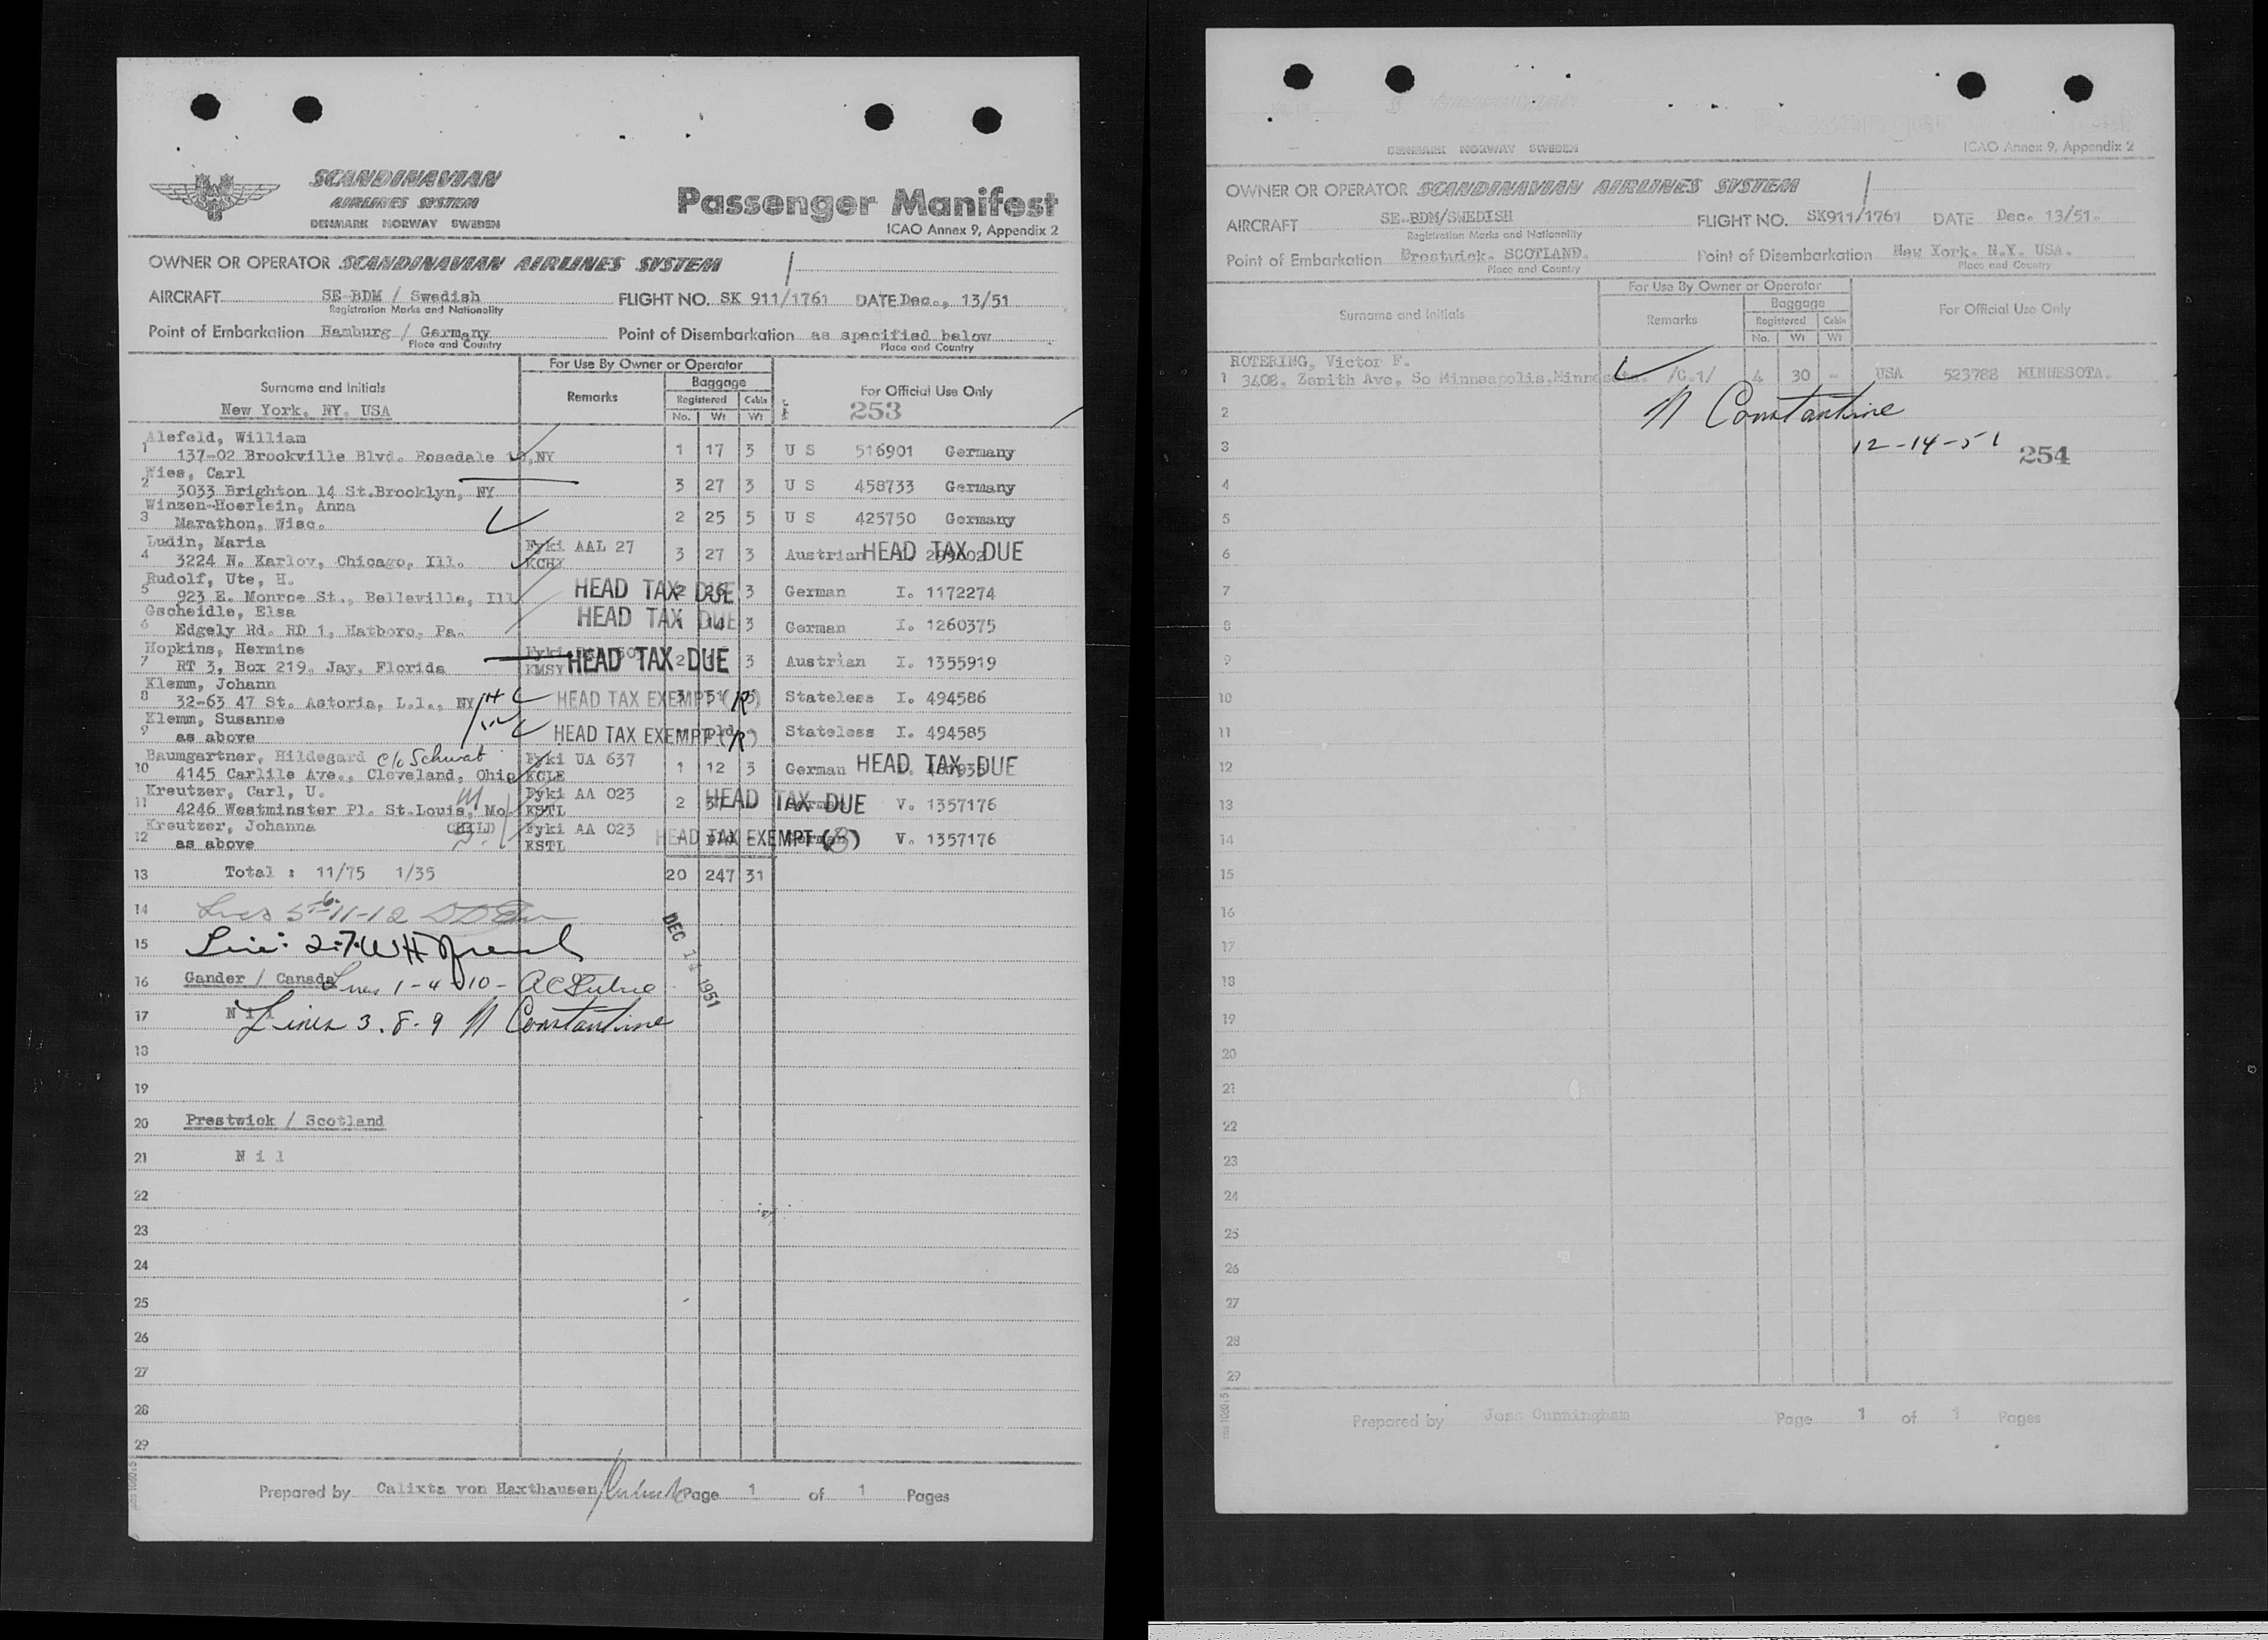 SCANDINAVIAN
AIRLINES SYSTEM
DENMARK NORWAY SWEDEN
Passenger Manifest
ICAO Annex 9, Appendix 2
OWNER OR OPERATOR SCANDINAVIAN AIRLINES SYSTEM
AIRCRAFT SE-BDM / Swedish FLIGHT NO. SK 911/1761 DATE Dec., 13/51
Registration Marks and Nationality
Point of Embarkation Hamburg / Germany Point of Disembarkation as specified below
Place and Country Place and Country
For Use By Owner or Operator
Surname and Initials Remarks Baggage For Official Use Only
Registered Cabin
New York. NY. USA No. Wt Wt 253
Alefeld, William
1 137-02 Brookville Blvd. Rosedale ,NY 1 17 3 U S 516901 Germany
Wies, Carl
2 3033 Brighton 14 St.Brooklyn, NY 3 27 3 U S 458733 Germany
Winzen-Hoerlein, Anna
3 Marathon, Wisc. 2 25 5 U S 425750 Germany
Ludin, Maria Fyki AAL 27
4 3224 N. Karlov, Chicago, Ill. KCHI 3 27 3 Austrian HEAD TAX DUE
Rudolf, Ute, H.
5 923 E. Monroe St., Belleville, Ill HEAD TAX DUE 2 3 German I. 1172274
Gscheidle, Elsa
6 Edgely Rd. RD 1, Hatboro, Pa. HEAD TAX DUE 3 German I. 1260375
Hopkins, Hermine Fyki
7 RT 3, Box 219, Jay, Florida KMSY HEAD TAX DUE 2 3 Austrian I. 1355919
Klemm, Johann
8 32-63 47 St. Astoria, L.i., NY HEAD TAX EXEMPT (R) 3 51 Stateless I. 494586
Klemm, Susanne
9 as above HEAD TAX EXEMPT (R) Stateless I. 494585
Baumgartner, Hildegard c/o Schwab Fyki UA 637
10 4145 Carlile Ave., Cleveland, Ohio KCLE 1 12 3 German HEAD TAX DUE
Kreutzer, Carl, U. M Fyki AA 023
11 4246 Westminster Pl. St.Louis, Mo KSTL 2 HEAD TAX DUE German V. 1357176
Kreutzer, Johanna CHILD Fyki AA 023
12 as above KSTL HEAD TAX EXEMPT (3) German V. 1357176
13 Total : 11/75 1/35 20 247 31
14 Lines 5-6-11-12
15 Line: 2-7 WH French
DEC 14 1951
16 Gander / Canada Lines 1-4-10-
17 N i l Lines 3. 8-9 N Constantine
18
19
20 Prestwick / Scotland
21 N i l
22
23
24
25
26
27
28
29
Prepared by Calixta von Haxthausen Page 1 of 1 Pages
DENMARK NORWAY SWEDEN
ICAO Annex 9, Appendix 2
OWNER OR OPERATOR SCANDINAVIAN AIRLINES SYSTEM
AIRCRAFT SE-BDM/SWEDISH FLIGHT NO. SK911/1761 DATE Dec. 13/51.
Registration Marks and Nationality
Point of Embarkation Prestwick. SCOTLAND. Point of Disembarkation New York. N.Y. USA.
Place and Country Place and Country
For Use By Owner or Operator
Surname and Initials Remarks Baggage For Official Use Only
Registered Cabin
No. Wt Wt
ROTERING, Victor F.
1 3408, Zenith Ave, So Minneapolis,Minnesota. /C.1/ 4 30 - USA 523788 MINNESOTA.
2 N Constantine
3 12-14-51 254
4
5
6
7
8
9
10
11
12
13
14
15
16
17
18
19
20
21
22
23
24
25
26
27
28
29
Prepared by Joss Cunningham Page 1 of 1 Pages